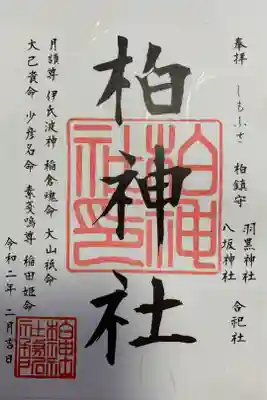 奉拝 しもふさ 柏鎮守 羽黒神社 八坂神社 合祀社
柏神社
月讀尊 伊氏波神 稲倉魂命 大山祇命
大己貴命 少彦名命 素戔嗚尊 稲田姫命
令和二年二月吉日
柏神社印